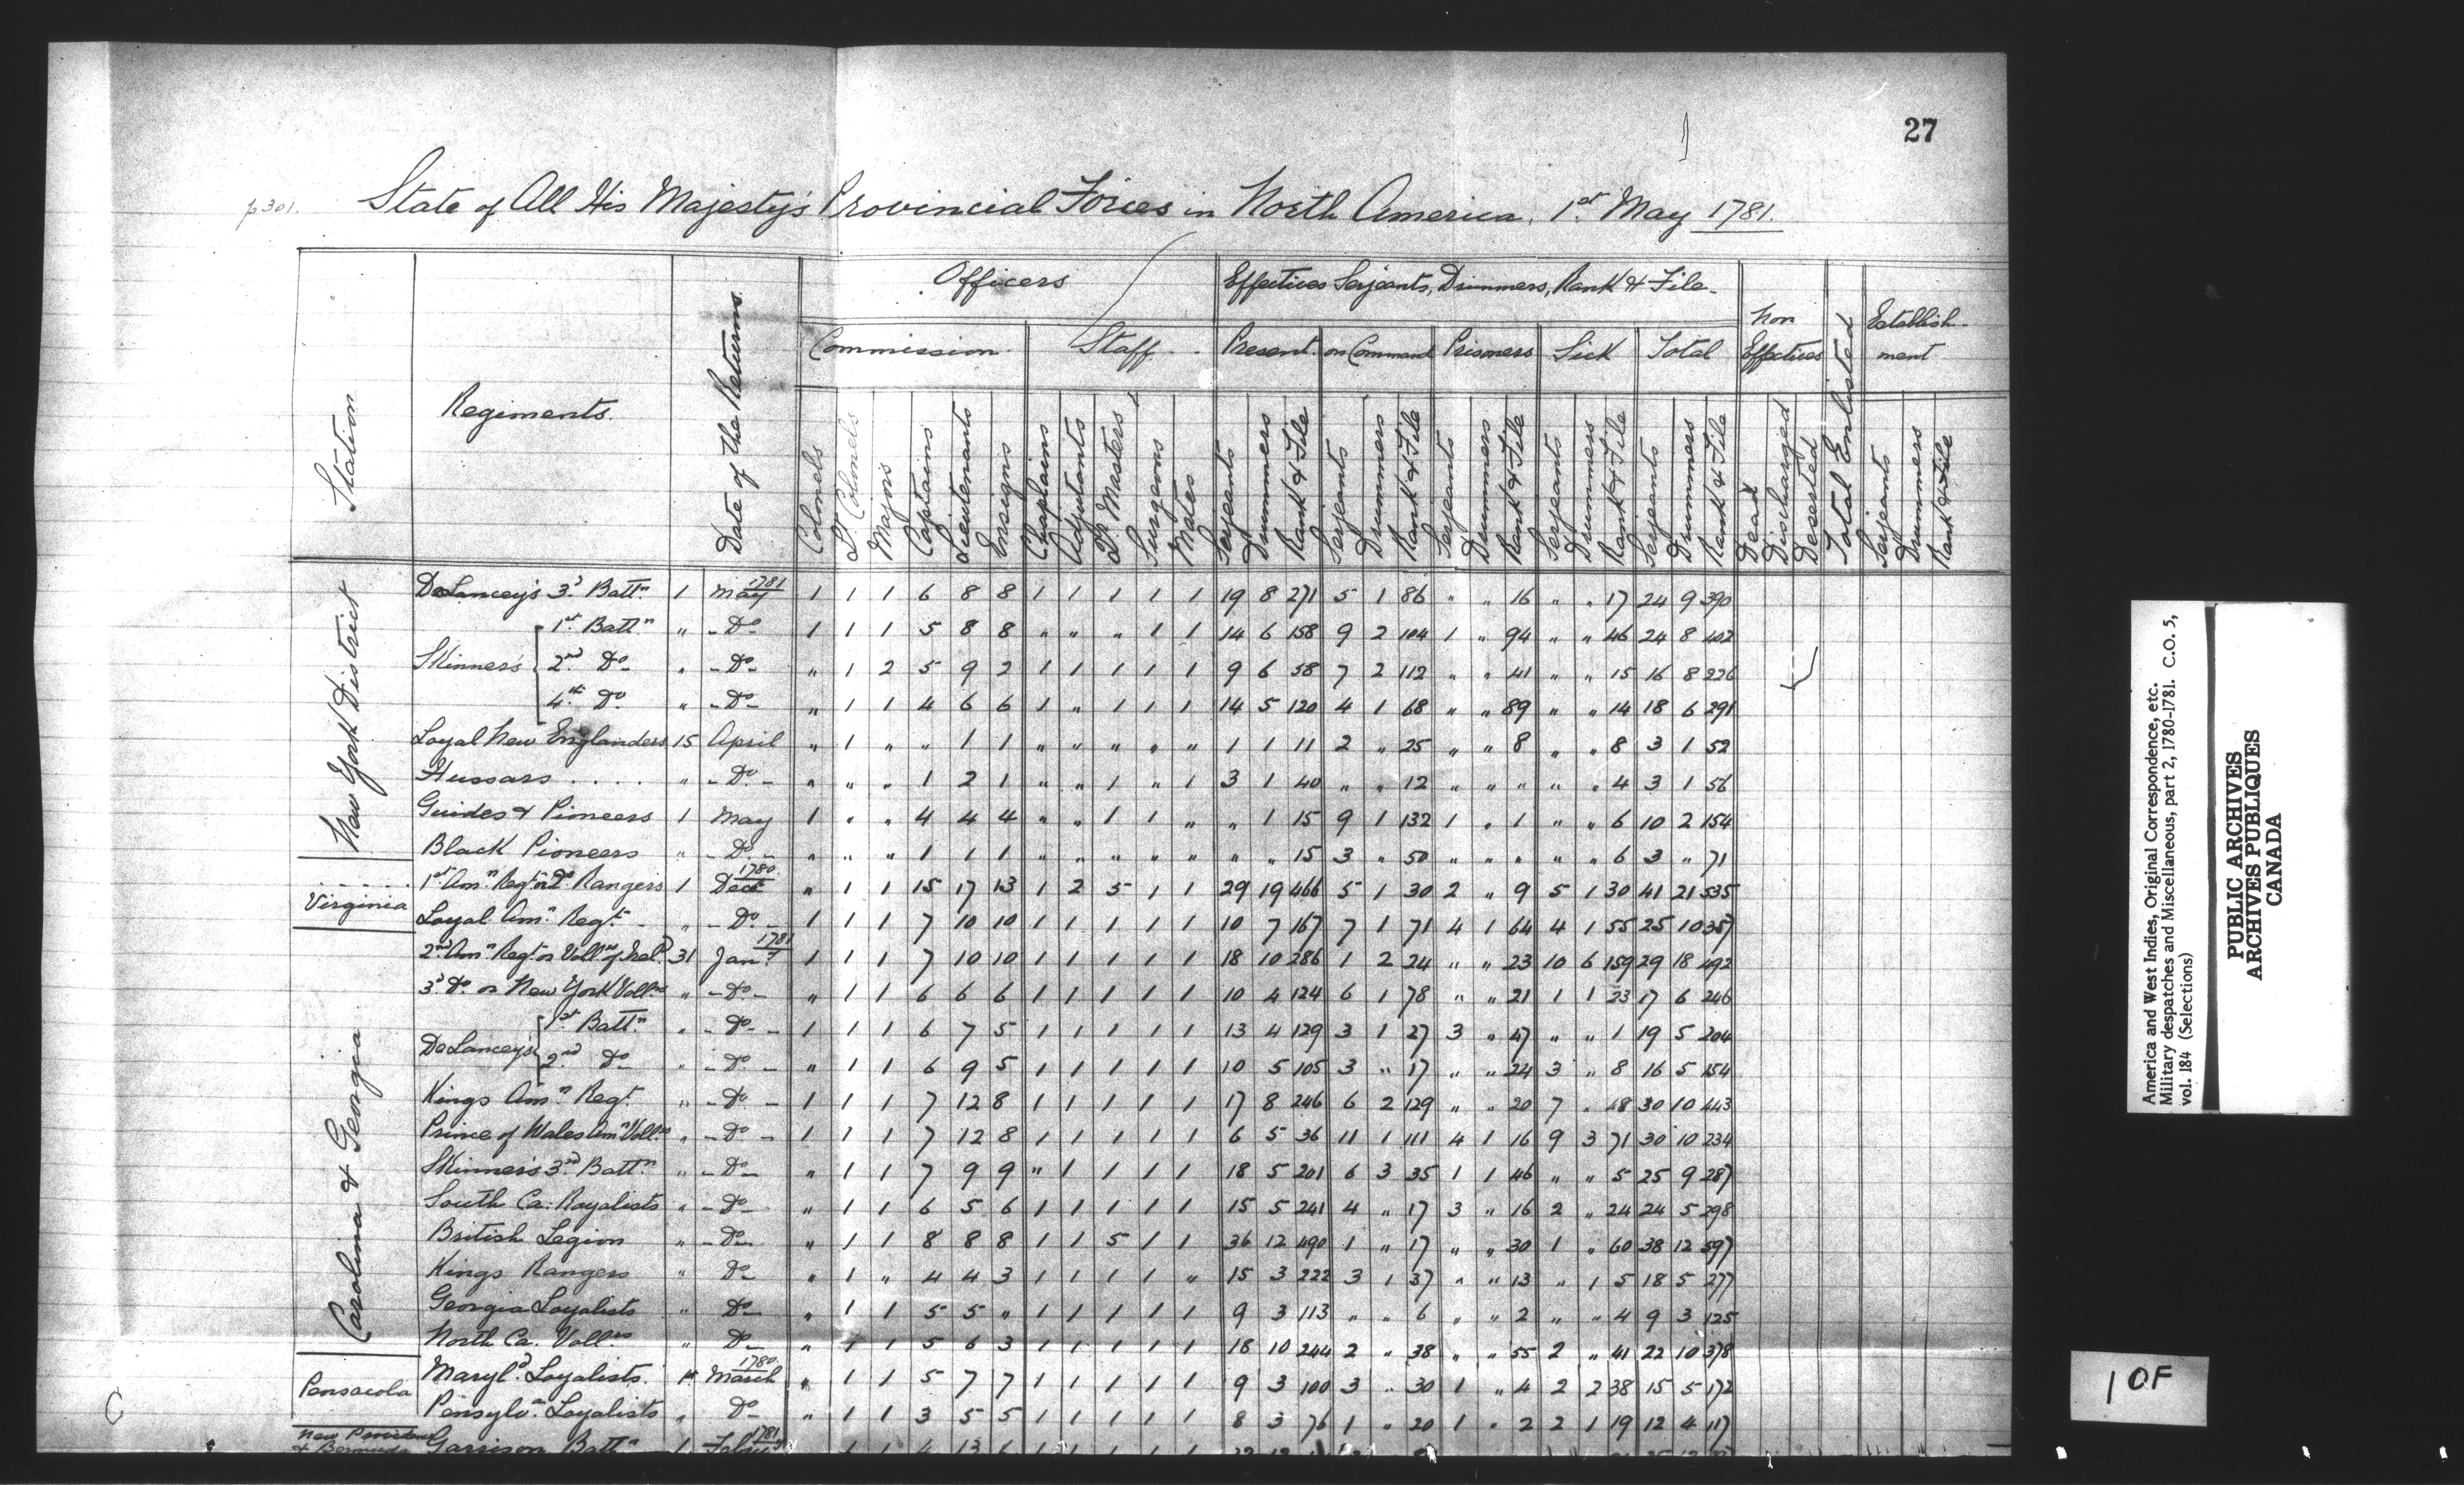 27
p301. State of All His Majesty's Provincial Forces in North America, 1st May 1781.
Station
Regiments.
Date of the Returns.
Officers
Effectives Serjeants, Drummers, Rank & File.
Non Effectives
Total Enlisted
Establish-ment
Commission Staff Present on Command Prisoners Sick Total
Colonels Lt Colonels Majors Captains Lieutenants Ensigns Chaplains Adjutants Qr Masters Surgeons Mates Serjeants Drummers Rank & File Serjeants Drummers Rank & File Serjeants Drummers Rank & File Serjeants Drummers Rank & File Serjeants Drummers Rank & File Dead Discharged Deserted Serjeants Drummers Rank & File
New York District
DeLancey's 3d Battn 1 May 1781 1 1 1 6 8 8 1 1 1 1 1 19 8 271 5 1 86 " " 16 " " 17 24 9 390
Skinner's
1st Battn " - Do - 1 1 1 5 8 8 " " " 1 1 14 6 158 9 2 104 1 " 94 " " 46 24 8 402
2nd Do " - Do - " 1 2 5 9 2 1 1 1 1 1 9 6 58 7 2 112 " " 41 " " 15 16 8 226
4th Do " - Do - " 1 1 4 6 6 1 " 1 1 1 14 5 120 4 1 68 " " 89 " " 14 18 6 291
Loyal New Englanders 15 April " 1 " " 1 1 " " " " " 1 1 11 2 " 25 " " 8 " " 8 3 1 52
Hussars . . . . " - Do - " " " 1 2 1 " " 1 " 1 3 1 40 " " 12 " " " " " 4 3 1 56
Guides & Pioneers 1 May 1 " " 4 4 4 " " 1 1 " " 1 15 9 1 132 1 " 1 " " 6 10 2 154
Black Pioneers " - Do - " " " 1 1 1 " " " " " " " 15 3 " 50 " " " " " 6 3 " 71
Virginia
1st Amn Regt or Qs Rangers 1 Decr 1780 " 1 1 15 17 13 1 2 5 1 1 29 19 466 5 1 30 2 " 9 5 1 30 41 21 535
Loyal Amn Regt - " - Do - 1 1 1 7 10 10 1 1 1 1 1 10 7 167 7 1 71 4 1 64 4 1 55 25 10 357
Carolina & Georgia
2nd Amn Regt or Vollrs of Ireld 31 Jany 1781 1 1 1 7 10 10 1 1 1 1 1 18 10 286 1 2 24 " " 23 10 6 159 29 18 492
3d Do or New York Vollrs " - Do - " 1 1 6 6 6 1 1 1 1 1 10 4 124 6 1 78 " " 21 1 1 23 17 6 246
DeLancey's
1st Battn " - Do - 1 1 1 6 7 5 1 1 1 1 1 13 4 129 3 1 27 3 " 47 " " 1 19 5 204
2nd Do " - Do - " 1 1 6 9 5 1 1 1 1 1 10 5 105 3 " 17 " " 24 3 " 8 16 5 154
Kings Amn Regt " - Do - 1 1 1 7 12 8 1 1 1 1 1 17 8 246 6 2 129 " " 20 7 " 48 30 10 443
Prince of Wales Amn Vollrs " - Do - 1 1 1 7 12 8 1 1 1 1 1 6 5 36 11 1 111 4 1 16 9 3 71 30 10 234
Skinner's 3rd Battn " - Do - " 1 1 7 9 9 " 1 1 1 1 18 5 201 6 3 35 1 1 46 " " 5 25 9 287
South Ca: Royalists " - Do - " 1 1 6 5 6 1 1 1 1 1 15 5 241 4 " 17 3 " 16 2 " 24 24 5 298
British Legion " - Do - " 1 1 8 8 8 1 1 5 1 1 36 12 490 1 " 17 " " 30 1 " 60 38 12 597
Kings Rangers " Do - " 1 " 4 4 3 1 1 1 1 " 15 3 222 3 1 37 " " 13 " 1 5 18 5 277
Georgia Loyalists " Do - " 1 1 5 5 " 1 1 1 1 1 9 3 113 " " 6 " " 2 " " 4 9 3 125
North Ca. Vollrs " Do - " 1 1 5 6 3 1 1 1 1 1 18 10 244 2 " 38 " " 55 2 " 41 22 10 378
Pensacola
Maryld Loyalists. 1st March 1780 " 1 1 5 7 7 1 1 1 1 1 9 3 100 3 " 30 1 " 4 2 2 38 15 5 172
Pensylva Loyalists " Do - " 1 1 3 5 5 1 1 1 1 1 8 3 76 1 " 20 1 " 2 2 1 19 12 4 117
New Providence & Bermuda Garrison Battn 1 Febry 1781
America and West Indies, Original Correspondence, etc.
Military despatches and Miscellaneous, part 2, 1780-1781. C.O. 5,
vol. 184 (Selections)
PUBLIC ARCHIVES
ARCHIVES PUBLIQUES
CANADA
1 OF